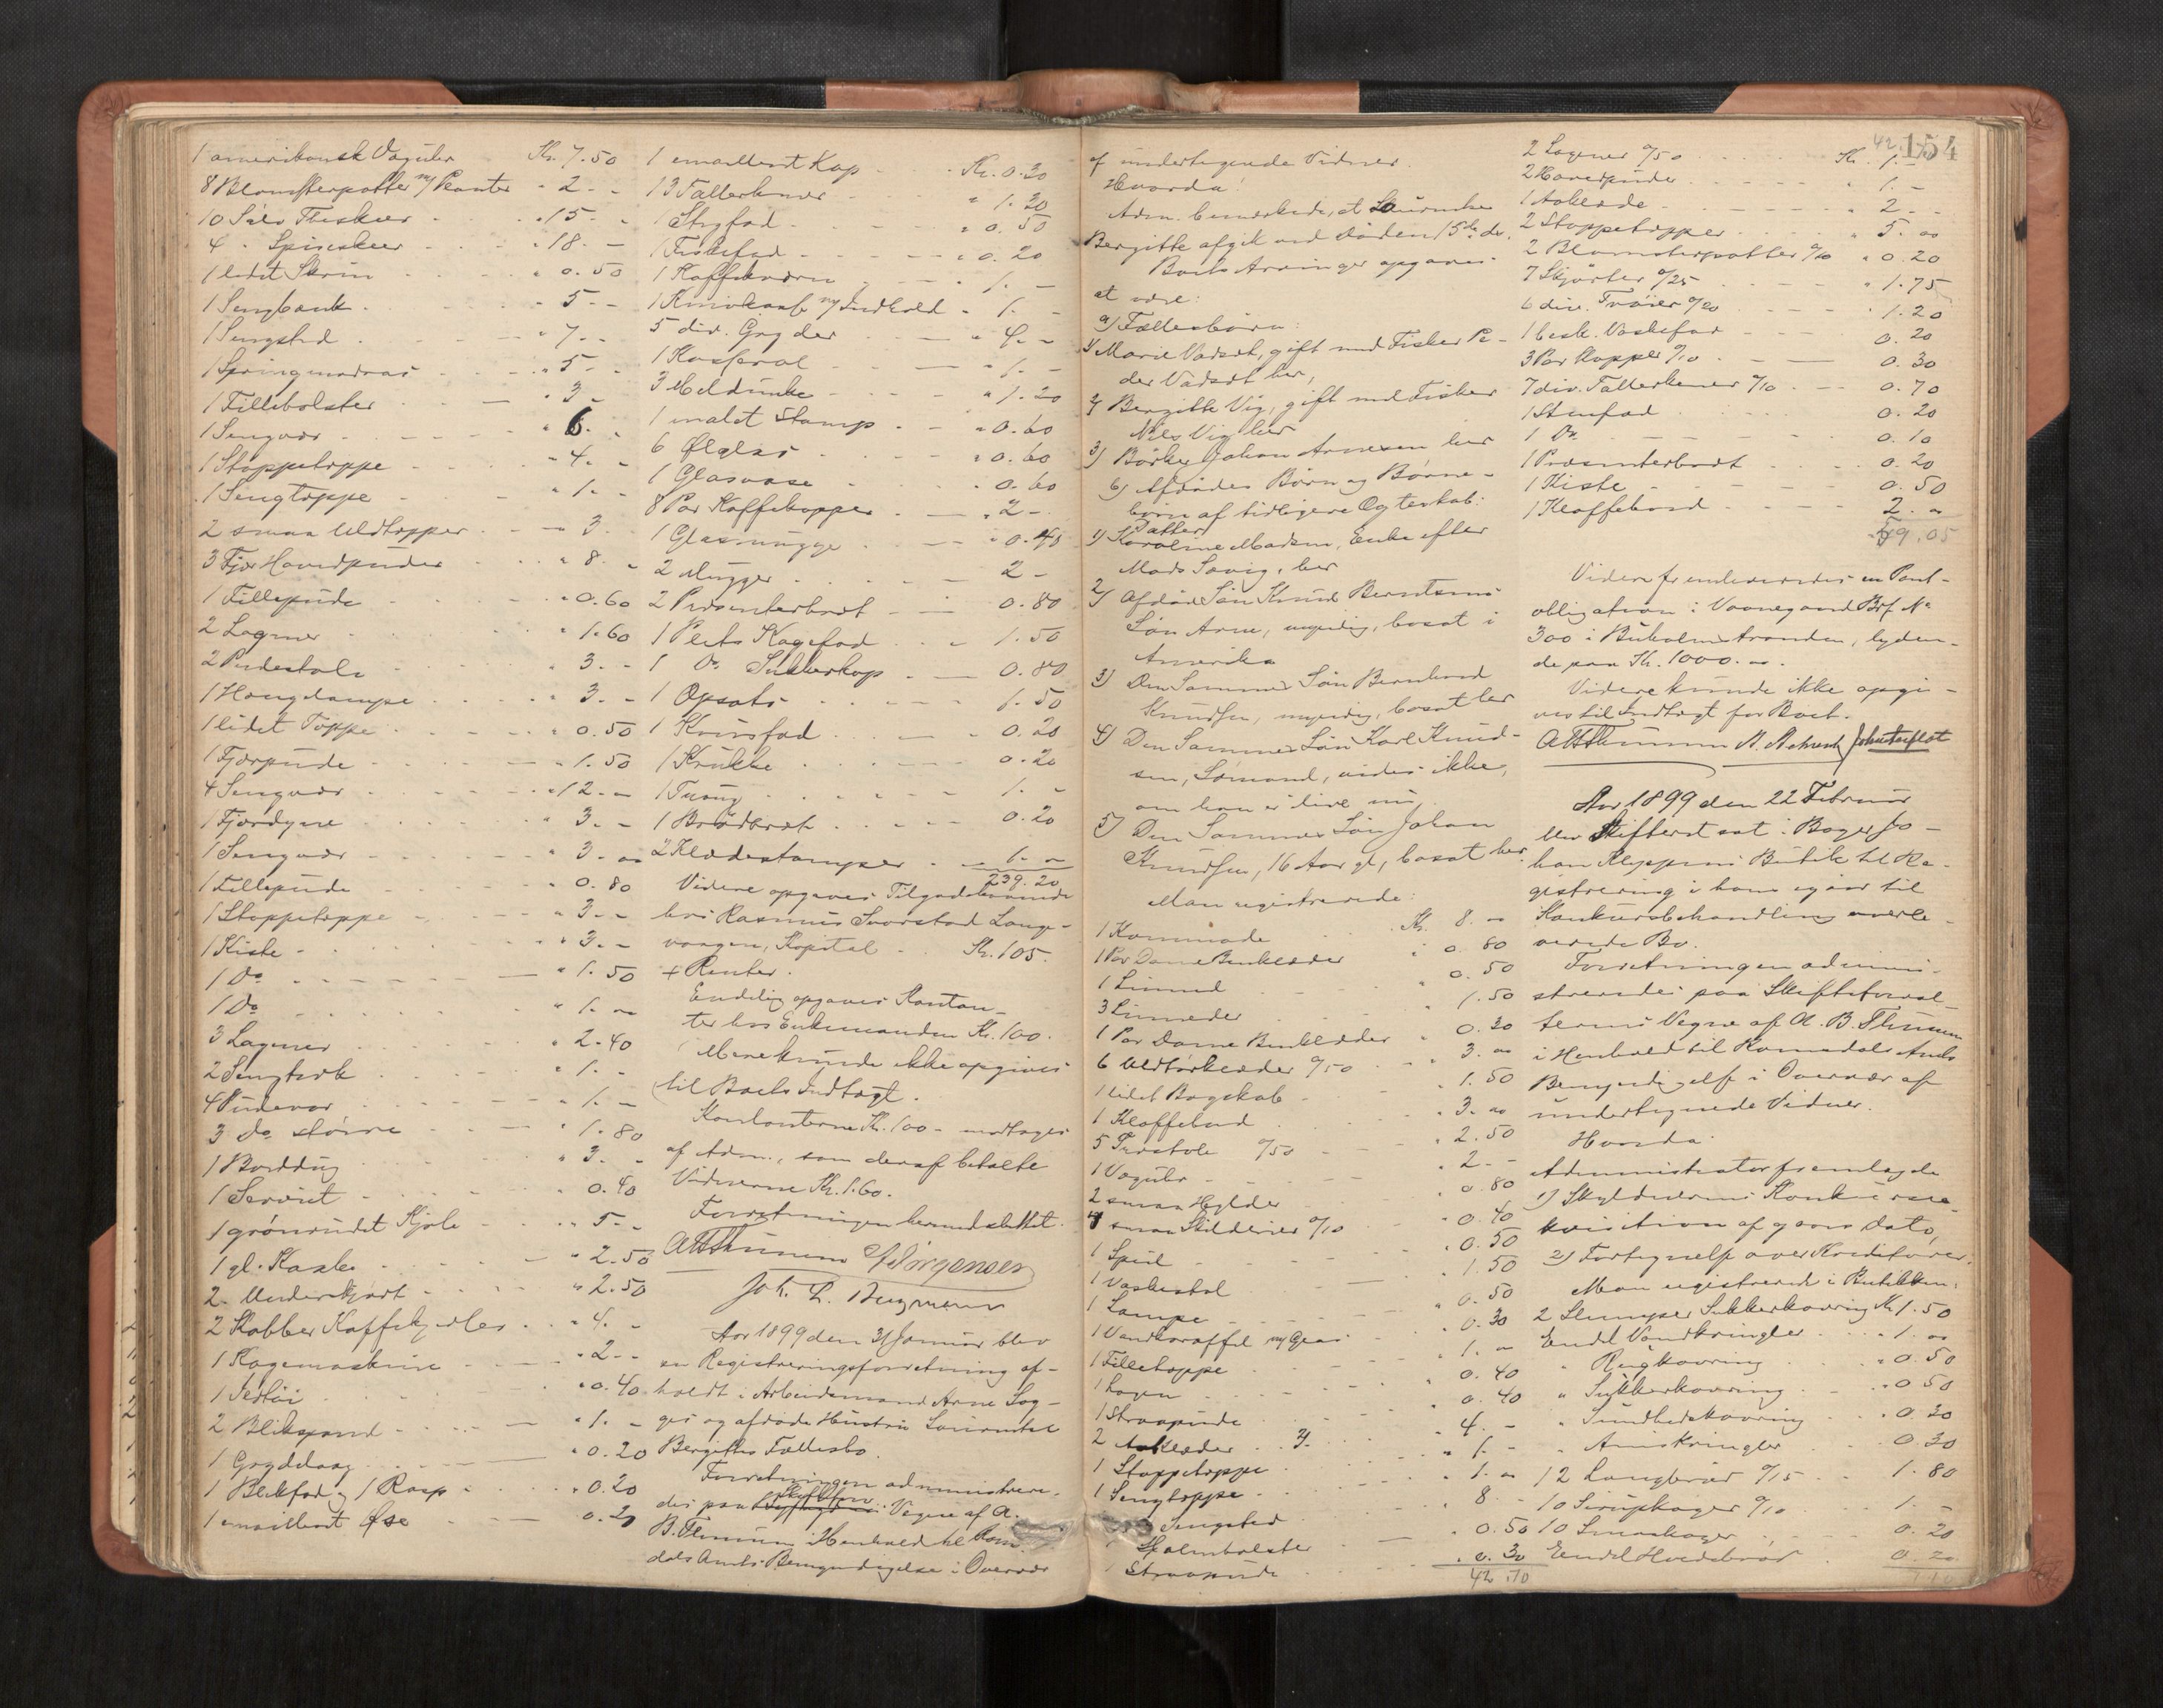 1 amerikansk Vaguhr Kr. 7.50
8 Blomsterpotter m/ Planter " 2 - -
10 Sølv Theskeer " 15 - -
4 " Spiseskeer " 18 - -
1 lidet Skrin " 0.50
1 Sengbænk " 5 - -
1 Sengsted " 7 - -
1 Springmadras " 5 - -
1 Fillebolster " 3 -
1 Sengvær " 6 - -
1 Stoppeteppe " 4. -
1 Sengteppe " 1. -
2 smaa Uldtepper " 3
3 Fjær Hovedpuder " 8. -
1 Fillepude " 0.60
2 Lagner " 1.60
2 Pindestole " 3. -
1 Hængelampe " 3. -
1 lidet Teppe " 0.50
1 Fjærpude " 1.50
4 Sengvær " 12. -
1 Fjærdyne " 3. -
1 Sengvær " 3. -
1 Fillepude " 0.80
1 Stoppeteppe " 3. -
1 Kiste " 3. -
1 Do " 1.50
1 Do " 1. -
3 Lagner " 2.40
2 Sengtæk " 1. -
4 Pudevar " 1. -
3 do større " 1.80
1 Borddug " 3. -
1 Serviet " 0.40
1 grønrudet Kjole " 5 - -
1 gl. Kaabe " 2.50
2 Underskjørt " 2.50
2 Kobber Kaffekjedler " 4. -
1 Kagemaskine " 2 - -
1 " 0.40
2 Blikspand " 1. -
1 Grydelaag " 0.20
1 Blikfad og 1 Rasp " 0.20
1 emailleret Øse 0.20
1 emailleret Kop Kr. 0.30
13 Tallerkener " 1.30
1 Stegfad " 0.50
1 Fiskefad " 0.20
1 Kaffekværn " 1. -
1 Knivkasse m/ Indhold " 1. -
5 div. Gryder " 4. -
1 Kasserol " 1. -
3 Meldunke " 1.20
1 malet Stamp " 0.60
6 Ølglas " 0.60
1 Glasvase 0.60
8 Par Kaffekopper " 2 -
1 Glasmugge " 0.40
2 Mugger 2 -
2 Præsenterbræt 0.80
1 Plets Kagefad 1.50
1 Do Sukkerkop 0.80
1 Opsats 1.50
1 Krusfad 0.20
1 Krukke 0.20
1 Traug 1. -
1 Brødbræt 0.20
2 Klædestamper 1. -
239.20
Videre opgaves Tilgodehavende
hos Rasmus Svorstad Lang-
vaagen, Kapital Kr. 105.
+ Renter.
Endelig opgaves Kontan-
ter hos Enkemanden Kr. 100.
Mere kunde ikke opgives
til Boets Indtægt.
Kontanterne Kr. 100 - modtoges
af Adm., som deraf betalte
Vidnerne Kr. 1.60.
Forretningen hermed sluttet.
A B Thunem Jørgensen
Joh. L.
Aar 1899 den 31 Januar blev
en Registreringsforretning af-
holdt i Arbeidsmand Arne
og afdøde Hustru
Bergittes Fællesbo.
Forretningen administrere-
des paa Skifteforv. Vegne af A.
B. Thunem i Henhold til Rom-
dals Amts Bemyndigelse i Overvær
42. 154
af undertegnede Vidner.
Hvorda:
Adm. bemærkede, at
Bergitte afgik ved Døden 15de ds.
Boets Arvinger opgaves
at være:
a) Fællesbørn:
1) Marie Vadset, gift med Fisker Pe-
der Vadset her,
2) Bergitte Vig, gift med Fisker
Nils Vig her
3) Johan Arnesen her
b) Afdødes Børn og Børne-
børn af tidligere Ægteskab:
Datter
1) Karoline Madsen, Enke efter
Mads Sævig, her
2) Afdøde Søn Knud Berntsens
Søn Arne, myndig, bosat i
Amerika
3) Den Sammes Søn Bernhard
Knudsen, myndig, bosat her
4) Den Sammes Søn Karl Knud-
sen, Sømand, vides ikke,
om han er i live nu.
5) Den Sammes Søn Johan
Knudsen, 16 Aar gl, bosat her.
Man registrerede:
1 Kommode Kr. 8. -
1 Par Dame Benklæder " 0.80
1 Linned " 0.50
3 Linneder " 1.50
1 Par Dame Benklæder " 0.30
6 Uldtørklæder a/50 " 3. -
1 lidet Bogskab " 1.50
1 Klaffebord " 3. -
5 Træstole a/50 " 2.50
1 Vaguhr " 2 - -
2 smaa Hylder " 0.80
4 smaa Skilderier a/10 " 0.40
1 Speil " 0.50
1 Vaskestol " 1.50
1 Lampe " 0.50
1 Vandkaraffel m/ Glas " 0.30
1 Filleteppe " 1. -
1 Lagen 0.40
1 Straapude 0.40
2 Aaklæder 4. -
1 Stoppeteppe " 1 -
1 Sengteppe " 1. -
Sengsted " 8 -
Halmbolster " 0.50
1 Straapude " 0.30
42.10
2 Lagner a/50 Kr. 1. -
2 Hovedpuder " 1. -
1 Aaklæde " 2 - -
2 Stoppetepper " 5. -
2 Blomsterpotter a/10 " 0.20
7 Skjorter a/25 " 1.75
6 div. Trøier a/20 " 1.20
1 besk. Vaskefad 0.20
3 Par Kopper a/10 0.30
7 div. Tallerkener a/10 0.70
1 Stenfad 0.20
1 Do 0.10
1 Præsenterbræt 0.20
1 Kiste 0.50
1 Klaffebord 2. -
59.05
Videre fremlevredes en Pant-
obligation i Vaanegaard Brf. No
300 i Buholmstranden, lyden-
de paa Kr. 1000. -.
Videre kunde ikke opgi-
ves til Indtægt for Boet.
A B Thunem
Aar 1899 den 22 Februar
blev Skifteret sat i Bager Jo-
han Kleppens Butik til Re-
gistrering i hans igaar til
Konkursbehandling overle-
verede Bo.
Forretningen admini-
streredes paa Skifteforval-
terens Vegne af A. B. Thunem
i Henhold til Romsdals Amts
Bemyndigelse i Overvær af
undertegnede Vidner.
Hvorda:
Administrator fremlagde
1) Skyldnerens Konkursre-
kvisition af gaars Dato,
2) Fortegnelse over Kreditorer.
Man registrerede i Butikken:
2 Slumper Sukkerkavring Kr 1.50
Endel Vandkringler " 1. -
" Rugkavring " 0.50
" Sukkerkavring " 0.50
" Sundhedskavring " 0.30
" Aniskringler 0.30
12 Langbrød a/15 1.80
10 Sirupskager a/10 1. -
10 Smaakager 0.20
Endel Hvedebrød 0.20